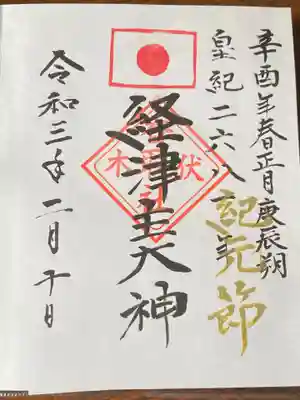 辛酉年春正月庚辰朔
皇紀二六八一年
紀元節
経津主大神
伏
木
令和三年二月十日